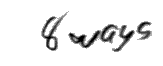 8 ways